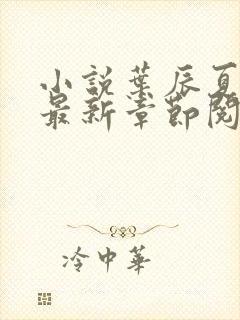 小說葉辰夏
最新章節閱
冷中華